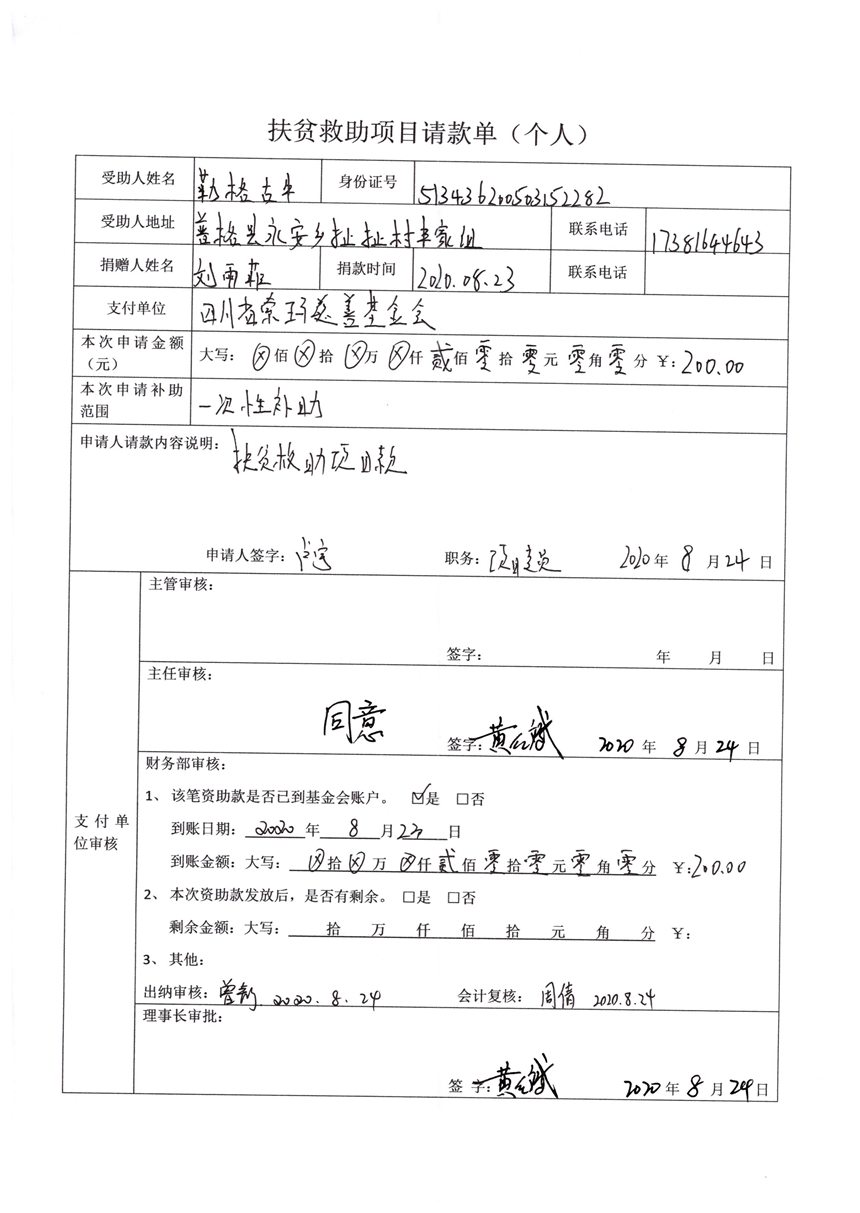 扶贫救助项目请款单（个人）
受助人姓名 勒格古牛 身份证号 513436200503152282
受助人地址 普格县永安乡扯扯村丰家组 联系电话 17381644643
捐赠人姓名 刘雨菲 捐款时间 2020.08.23 联系电话
支付单位 四川省索玛慈善基金会
本次申请金额（元） 大写：⊗佰⊗拾⊗万⊗仟贰佰零拾零元零角零分 ￥：200.00
本次申请补助范围 一次性补助
申请人请款内容说明：扶贫救助项目款
申请人签字： 职务：项目专员 2020年8月24日
支付单位审核
主管审核：
签字： 年 月 日
主任审核：
同意
签字：黄红斌 2020年8月24日
财务部审核：
1、该笔资助款是否已到基金会账户。 ☑是 □否
到账日期：2020年8月23日
到账金额：大写：⊗拾⊗万⊗仟贰佰零拾零元零角零分 ￥：200.00
2、本次资助款发放后，是否有剩余。 □是 □否
剩余金额：大写： 拾 万 仟 佰 拾 元 角 分 ￥：
3、其他：
出纳审核：曾 2020.8.24 会计复核：周倩 2020.8.24
理事长审批：
签字：黄红斌 2020年8月24日